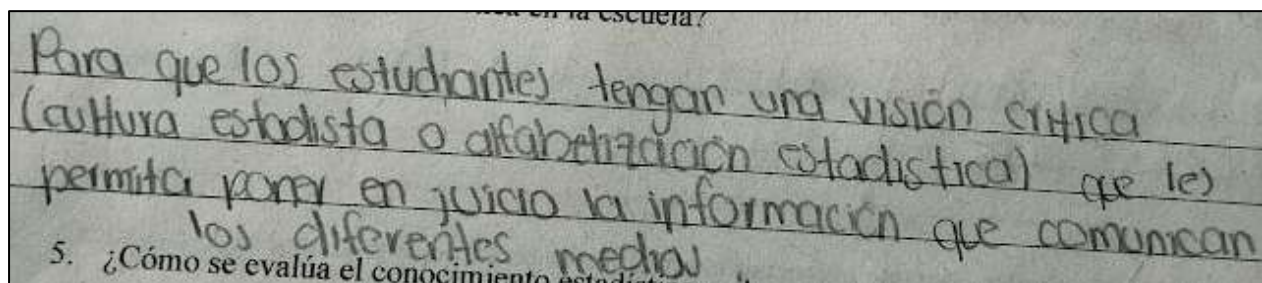 en la escuela?
Para que los estudiantes tengan una visión critica
(cultura estadista o alfabetización estadistica) que les
permita poner en juicio la información que comunican
los diferentes medios.
5. ¿Cómo se evalúa el conocimiento